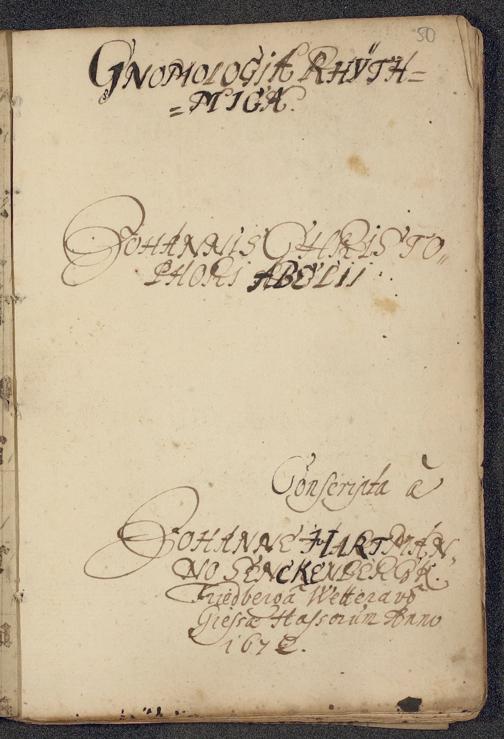 50
GNOMOLOGIA RHŸTH=
=MICA.
JOHANNIS CHRISTO„
PHORI ABELII
Conscripta à
JOHANNE HARTMAN„
NO SENCKENBERGK.
Friedbergâ Wetteravô
Giessæ Hassorum Anno